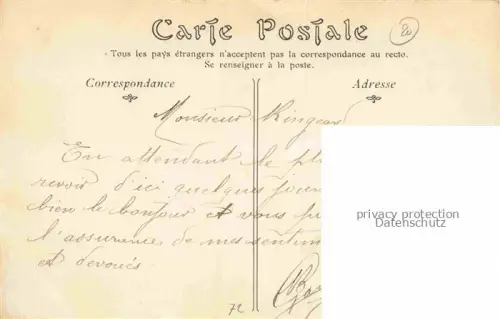 Carte Postale
20
Tous les pays étrangers n'acceptent pas la correspondance au recto.
Se renseigner à la poste.
Correspondance
Adresse
Monsieur
En attendant le
revoir d'ici quelques
bien le bonjour et vous
l'assurance de mes
et dévoués.
72
privacy protection
Datenschutz